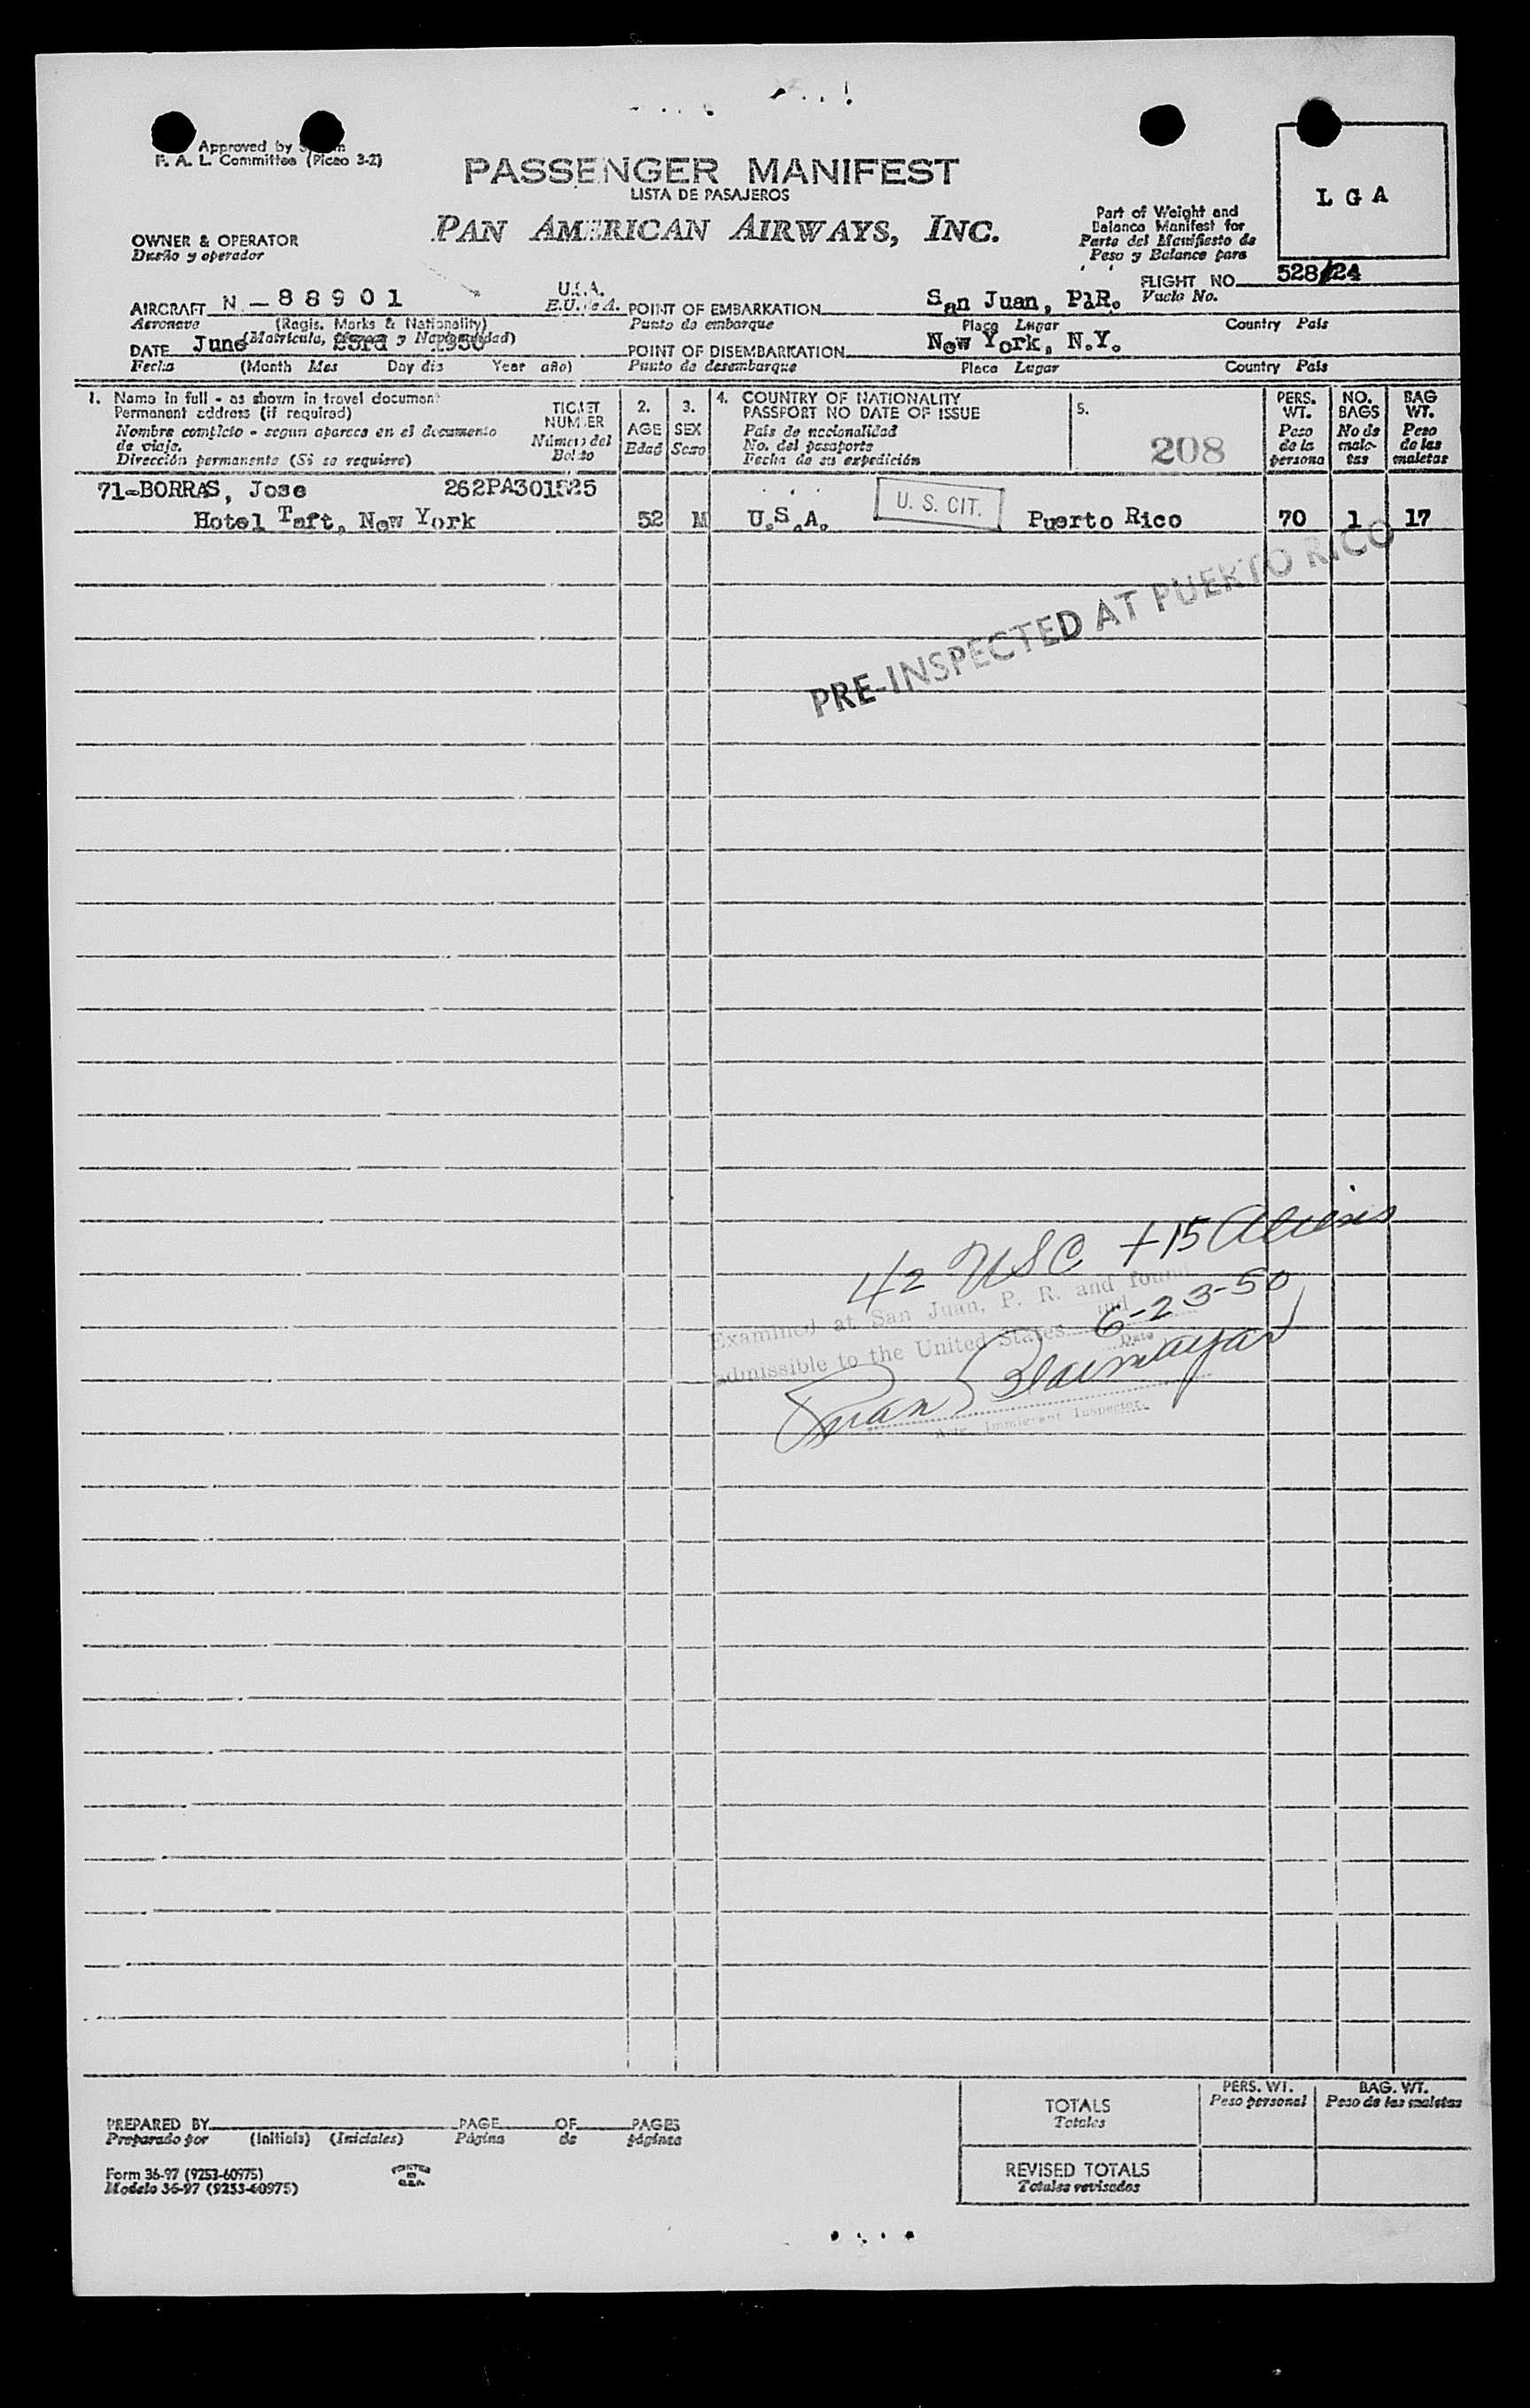 Approved by
F. A. L. Committee (Picao 3-2)
PASSENGER MANIFEST
LISTA DE PASAJEROS
PAN AMERICAN AIRWAYS, INC.
L G A
Part of Weight and
Balance Manifest for
Parte del Manifiesto de
Peso y Balance para
OWNER & OPERATOR
Dueño y operador
FLIGHT NO. 528/24
Vuelo No.
AIRCRAFT N - 88901 U.S.A.
Aeronave (Regis. Marks & Nationality) E.U. de A.
(Matrícula, Marcas y Nacionalidad)
POINT OF EMBARKATION San Juan, P.R.
Punto de embarque Place Lugar Country País
DATE June 23rd 1950
Fecha (Month Mes Day día Year año)
POINT OF DISEMBARKATION New York, N.Y.
Punto de desembarque Place Lugar Country País
1. Name in full - as shown in travel document
Permanent address (if required)
Nombre completo - segun aparece en el documento
de viaje.
Dirección permanente (Si se requiere)
TICKET
NUMBER
Número del
Boleto
2.
AGE
Edad
3.
SEX
Sexo
4. COUNTRY OF NATIONALITY
PASSPORT NO DATE OF ISSUE
País de nacionalidad
No. del pasaporte
Fecha de su expedición
5.
208
PERS.
WT.
Peso
de la
persona
NO.
BAGS
No de
male-
tas
BAG
WT.
Peso
de las
maletas
71-BORRAS, Jose 262PA301525
Hotel Taft, New York 52 M U.S.A. U. S. CIT. Puerto Rico 70 1 17
PRE-INSPECTED AT PUERTO RICO
42 USC +15 Aliens
Examined at San Juan, P. R. and found
admissible to the United States 6-23-50
Date
Juan
Immigrant Inspector.
PREPARED BY PAGE OF PAGES
Preparado por (Initials) (Iniciales) Página de páginas
Form 36-97 (9253-60975)
Modelo 36-97 (9253-60975)
PRINTED
IN
U.S.A.
TOTALS
Totales
PERS. WT.
Peso personal
BAG. WT.
Peso de las maletas
REVISED TOTALS
Totales revisados